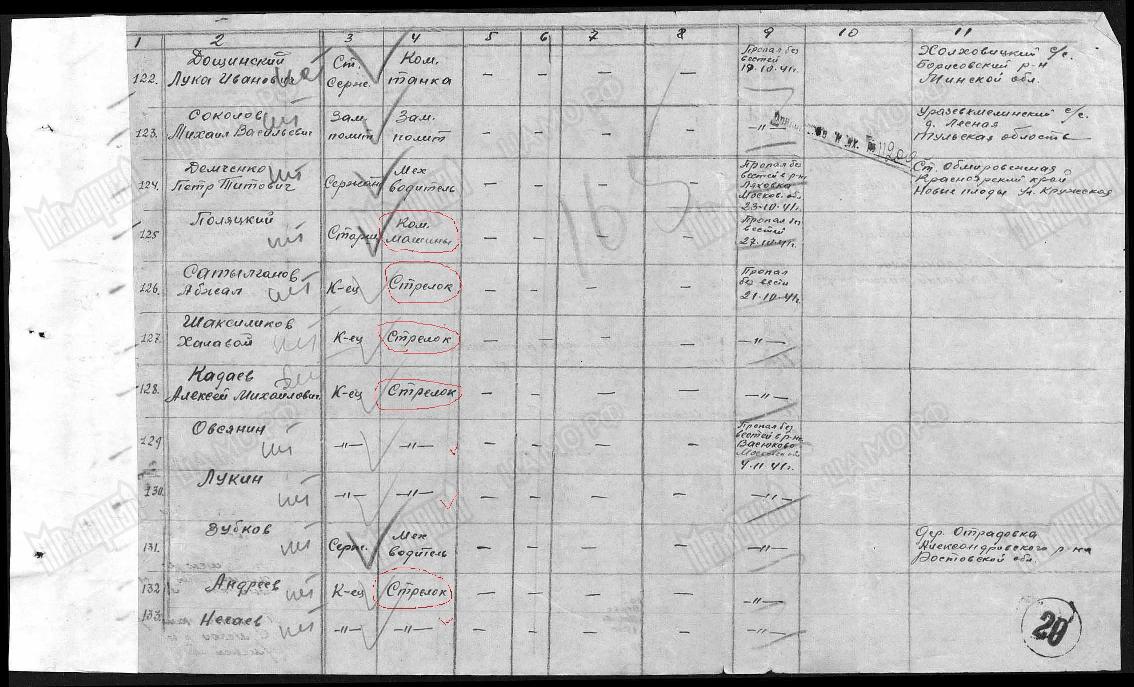 1 2 3 4 5 6 7 8 9 10 11
122. Дощинский Лука Иванович Ст. Серж. Ком. танка — — — — Пропал без вестей 19.10.41г. Холховицкий с/с. Борисовский р-н Минской обл.
123. Соколов Михаил Васильевич Зам. полит Зам. полит — — — — —"— с/с. д. Лесная Тульская область
124. Демченко Петр Титович Сержант Мех водитель — — — — Пропал без вестей в р-н Москов. об. 23.10.41г. Ст. Красноярский край Новые плоды ул. Кружеская
125 Поляцкий Старш Ком. машины — — — — Пропал без вестей 27.10.41г.
126. Сатылганов Абжал К-ец Стрелок — — — — Пропал без вести 21.10.41г
127. Шаксиликов Халавой К-ец Стрелок — — — — —"—
128. Кадаев Алексей Михайлович К-ец Стрелок — — — — —"—
129 Овсянин —"— —"— — — — — Пропал без вестей в р-не Васюково Московской 4.11.41г.
130. Лукин —"— —"— — — — — —"—
131. Зубков Серж. Мех водитель — — — — —"— Дер. Отрадовка Александровского р-на Ростовской обл.
132 Андреев К-ец Стрелок — — — — —"—
133. Несаев —"— —"— — — — — —"—
20
165
Мемориал ЦАМО РФ